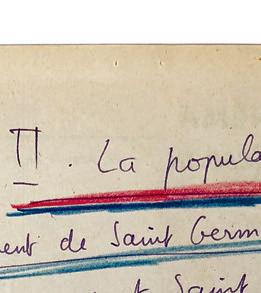 II. La popula
ent de Saint Germ
t Saint